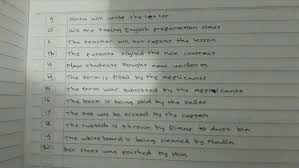 9. Maka will write the letter
10. We are taking English preparation class
11. The teacher will not repeat the lesson
12. The parents signed the rule contract
13. New students bought new uniform
14. The form is filled by the applicants
15. The form was submitted by the applicants
16. The book is being sold by the seller
17. The ball will be kicked by the captain
18. The rubbish is thrown by Dimas to dust bin
19. The whiteboard is being cleaned by Nadia
20. her shoes was polished by him